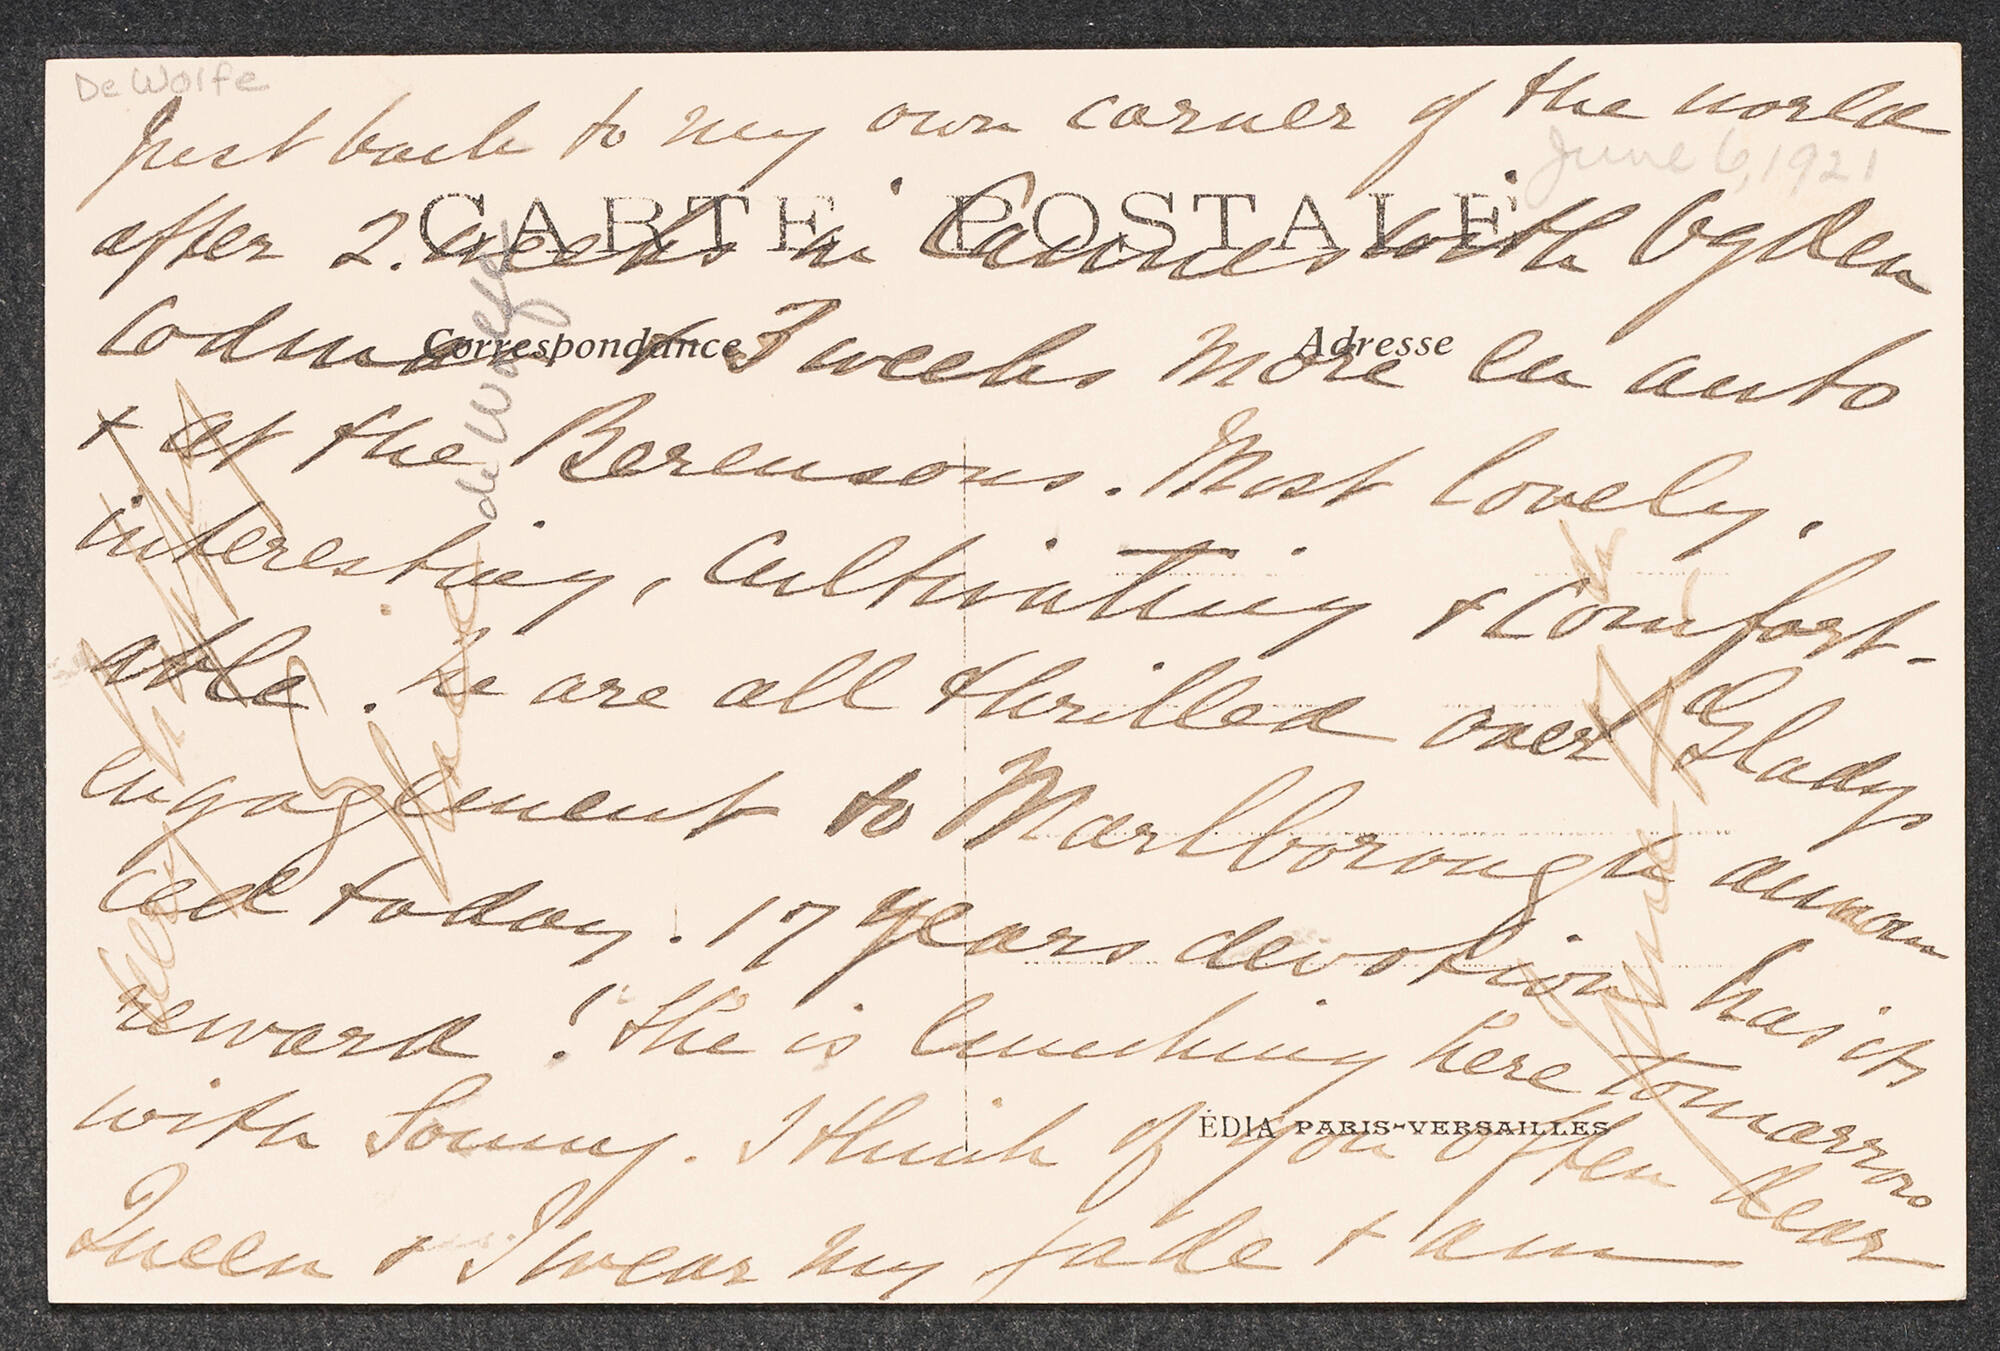 De Wolfe
Just back to my own corner of the world
June 6, 1921
CARTE POSTALE
after 2. weeks in Cannes with Ogden
Correspondance
Adresse
Codman & 3 weeks more en auto
de Wolfe
& at the Berensons. Most lovely,
interesting, cultivating & comfort-
able. We are all thrilled over Gladys
engagement to Marlborough announ
ced today. 17 years devotion has its
reward! She is lunching here tomorrow
with Sonny. I think of you often dear
ÉDIA PARIS-VERSAILLES
Queen & I wear my jade & am